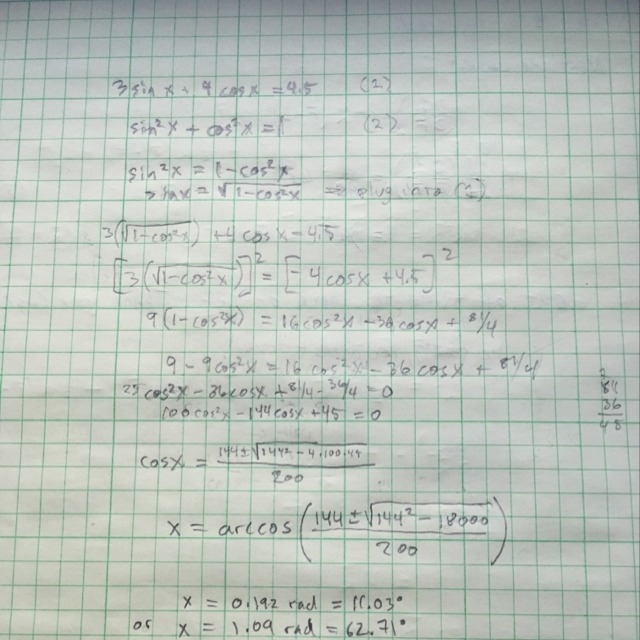 3 sin x + 4 cos x = 4.5 (1)
sin²x + cos²x = 1 (2)
sin²x = 1 - cos²x
sin x = √(1-cos²x) ⇒ plug into (1)
3(√(1-cos²x)) + 4 cos x = 4.5
[3(√(1-cos²x))]² = [-4 cos x + 4.5]²
9(1-cos²x) = 16 cos²x - 36 cos x + 81/4
9 - 9 cos²x = 16 cos²x - 36 cos x + 81/4
25 cos²x - 36 cos x + 81/4 - 36/4 = 0
81
36
45
100 cos²x - 144 cos x + 45 = 0
cos x = (144 ± √(144² - 4·100·45))/200
x = arccos((144 ± √(144² - 18000))/200)
x = 0.192 rad = 11.03°
or x = 1.09 rad = 62.71°